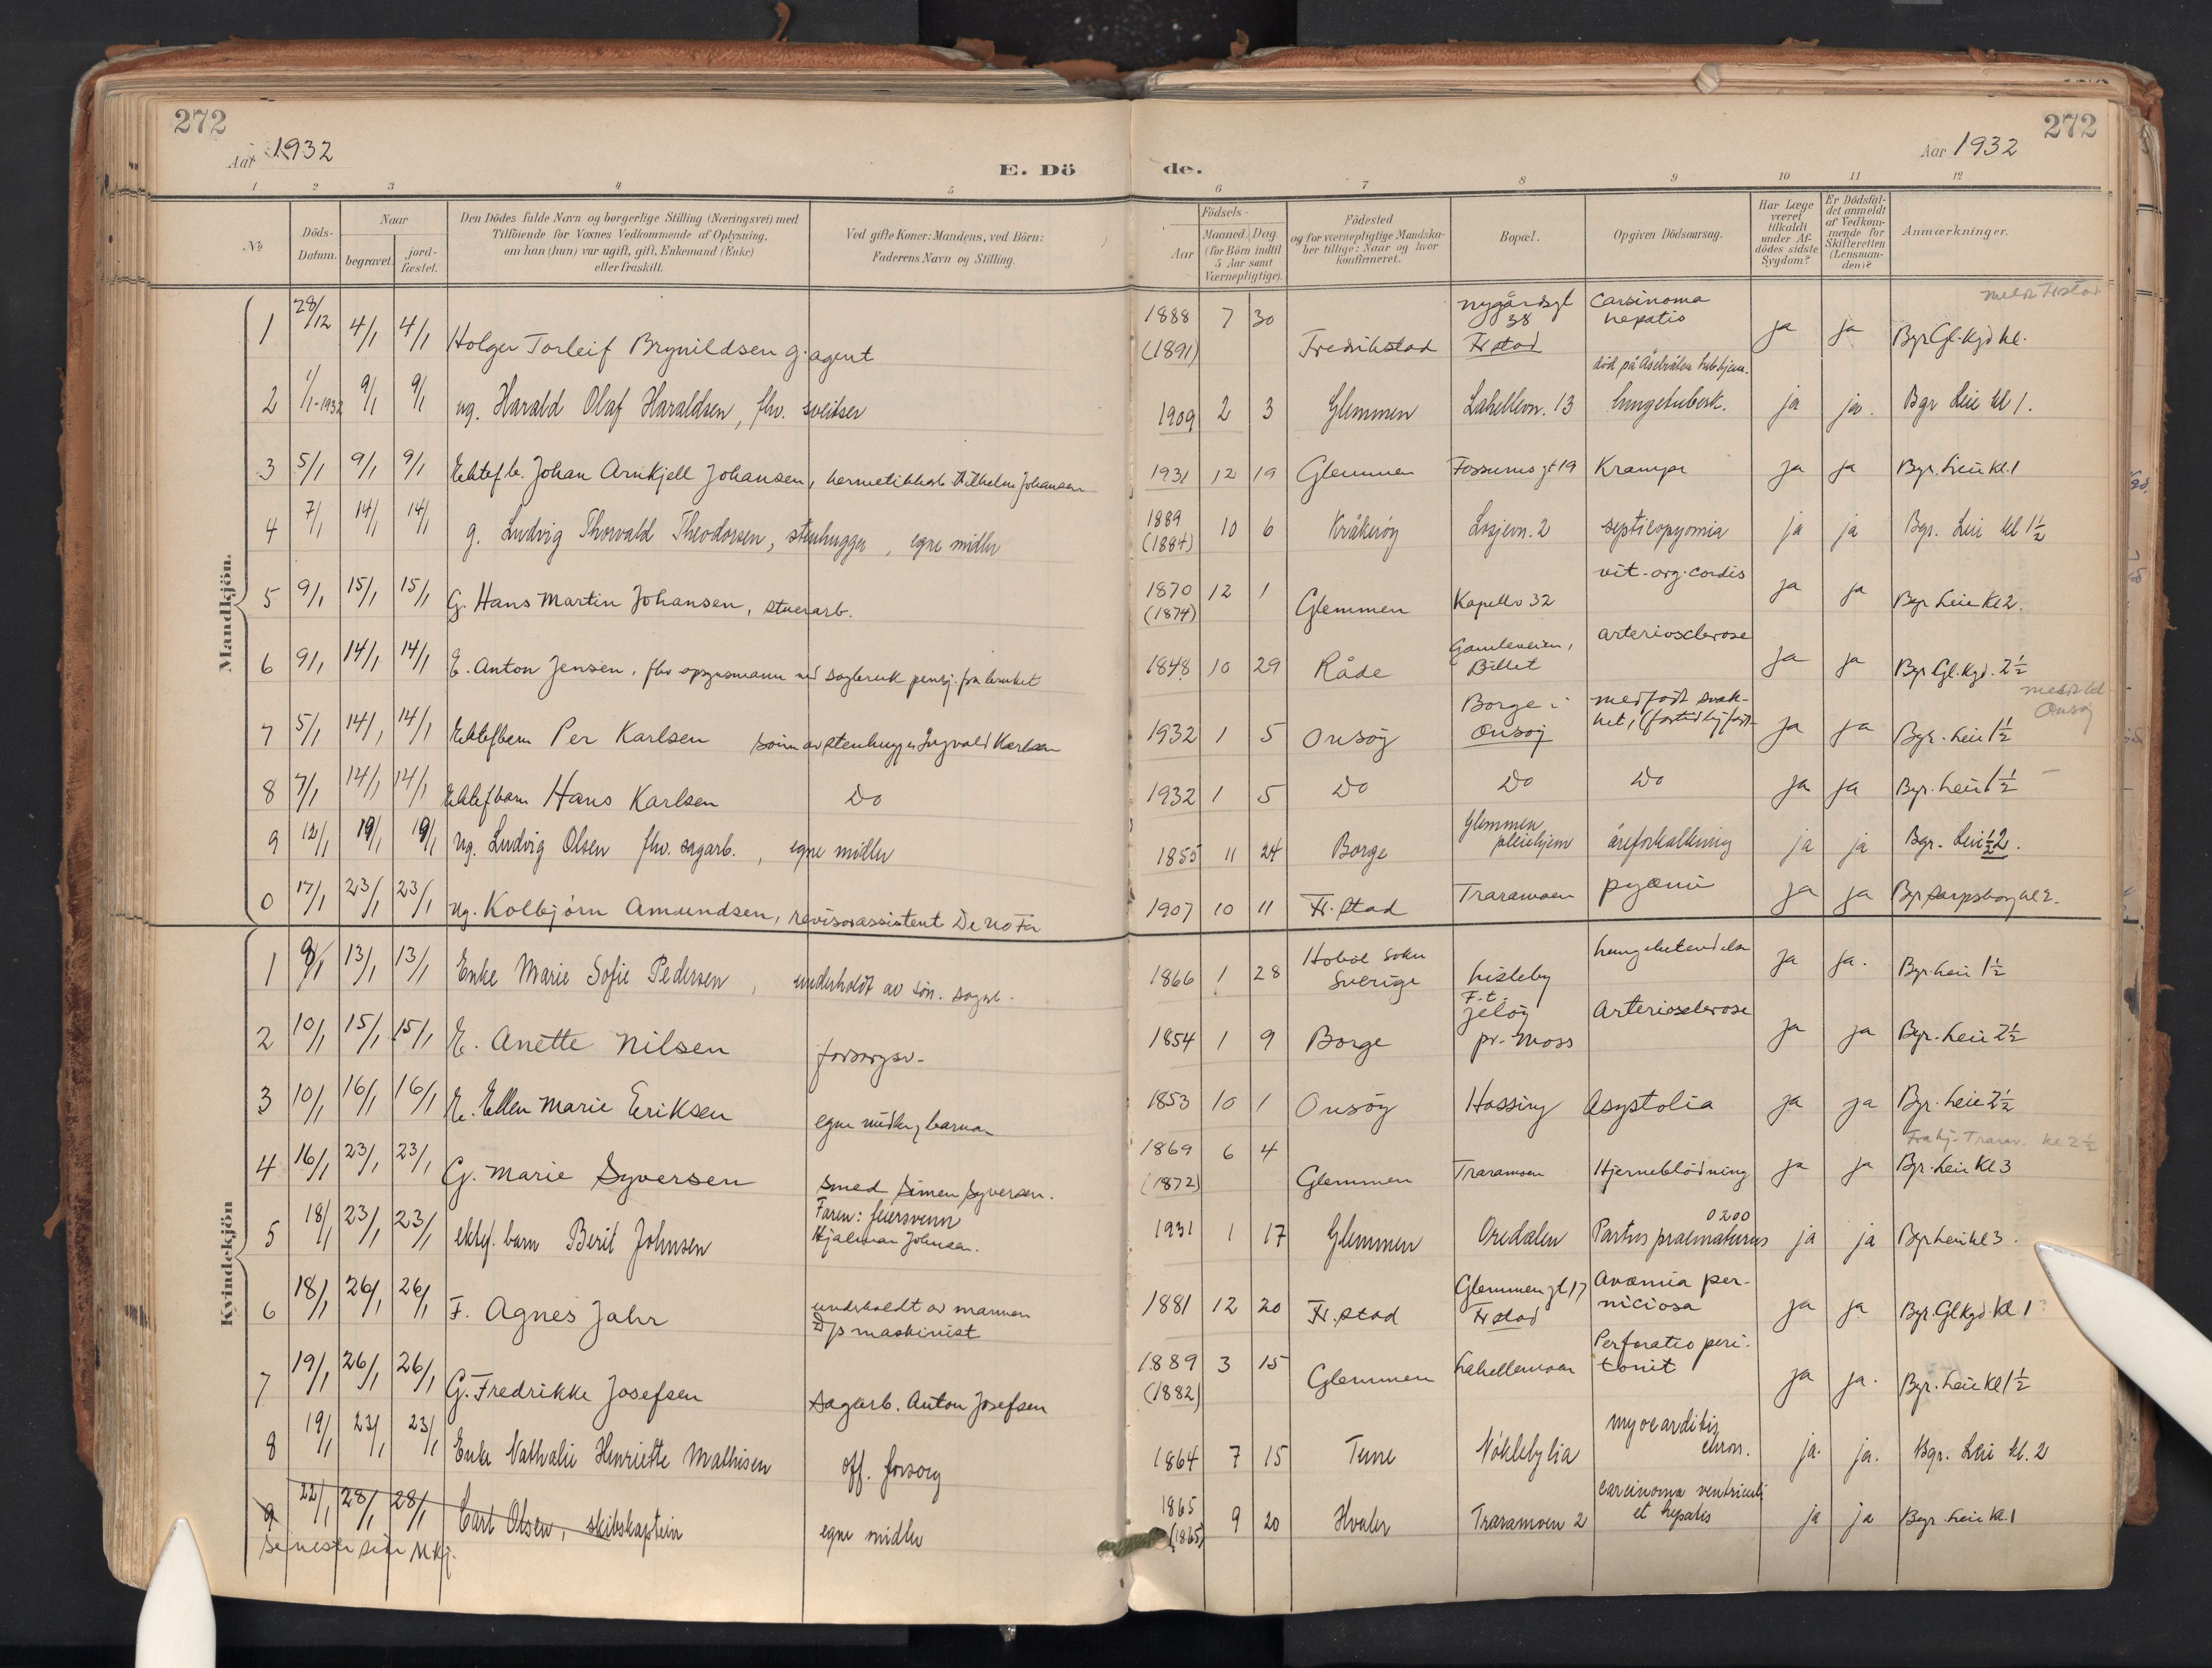 272
Aar 1932
E. Dö
de.
272
Aar 1932
1 2 3 4 5 6 7 8 9 10 11 12
No
Döds-Datum.
Naar
begravet.
jord-fæstet.
Den Dödes fulde Navn og borgerlige Stilling (Næringsvei) med
Tilföiende for Voxnes Vedkommende af Oplysning,
om han (hun) var ugift, gift, Enkemand (Enke)
eller fraskilt.
Ved gifte Koner: Mandens, ved Börn:
Faderens Navn og Stilling.
Födsels-
Aar
Maaned. Dag
(for Börn indtil
5 Aar samt
Værnepligtige).
Födested
og for værnepligtige Mandska-
ber tillige: Naar og hvor
konfirmeret.
Bopæl.
Opgiven Dödsaarsag.
Har Læge
været
tilkaldt
under Af-
dödes sidste
Sygdom?
Er Dödsfal-
det anmeldt
af Vedkom-
mende for
Skifteretten
(Lensman-
den)?
Anmærkninger.
Mandkjön.
1 28/12 4/1 4/1 Holger Torleif Brynildsen g. agent 1888 (1891) 7 30 Fredrikstad Nygårdsgt 38 Frstad Carsinoma hepatis ja ja Bgr Gl. Kgd kl.
2 1/1-1932 9/1 9/1 ug. Harald Olaf Haraldsen, fhv. sveitser 1909 2 3 Glemmen Lahellevn. 13 lungetuberk. ja ja. Bgr Leie kl 1.
3 5/1 9/1 9/1 Ektef. b. Johan Arnkjell Johansen, hermetikkarb. Vilhelm Johansen 1931 12 19 Glemmen Fossumsgt 19 Krampe ja ja Bgr. Leie kl. 1
4 7/1 14/1 14/1 g. Ludvig Thorvald Theodorsen, stenhugger, egne midler 1889 (1884) 10 6 Kråkerøy Losjevn. 2 septicopyomia ja ja Bgr. Leie kl 1½
5 9/1 15/1 15/1 G. Hans Martin Johansen, stuerarb. 1870 (1874) 12 1 Glemmen Kapellv 32 vit. org. cordis ja ja Bgr Leie Kl 2.
6 9/1 14/1 14/1 E. Anton Jensen, fhv opsynsmann ved sagbruk pensj. fra bruket 1848 10 29 Råde Gamleveien, Billet arteriosclerose ja ja Bgr Gl. Kgd. 2½
7 5/1 14/1 14/1 Ektef barn Per Karlsen sønn av stenhugger Ingvald Karlsen 1932 1 5 Onsøy Borge i Onsøy medfødt svak-het, ja ja Bgr. Leie 1½
Onsøy
8 7/1 14/1 14/1 Ektef barn Hans Karlsen Do 1932 1 5 Do Do Do ja ja Bgr. Leie 1½
9 12/1 19/1 19/1 Ug. Ludvig Olsen fhv. sagarb., egne midler 1855 11 24 Borge Glemmen pleiehjem åreforkalkning ja ja Bgr. Leie ½2.
0 17/1 23/1 23/1 Ug. Kolbjørn Amundsen, revisorassistent De No Fa 1907 10 11 Fr. stad Traramoen pyæmi ja ja Bgr Sarpsborg kl 2.
Kvindekjön
1 9/1 13/1 13/1 Enke Marie Sofie Pedersen, underholdt av søn. 1866 1 28 Sverige Lisleby lungebetendelse ja ja. Bgr. Leie 1½
2 10/1 15/1 15/1 E. Anette Nilsen forsorgsv. 1854 1 9 Borge F. t. Jeløy pr. Moss Arteriosclerose ja ja Bgr. Leie 2½
3 10/1 16/1 16/1 E. Ellen Marie Eriksen egne midler, barna 1853 10 1 Onsøy Hassing Asystolia ja ja Bgr. Leie 2½
4 16/1 23/1 23/1 G. Marie Syversen Smed Simen Syversen. 1869 (1872) 6 4 Glemmen Traramoen Hjerneblödning ja ja Fra hj. Trarav. kl 2½ Bgr. Leie Kl 3
5 18/1 23/1 23/1 ektef. barn Berit Johnsen Faren: feiersvenn Hjalmar Johnsen. 1931 1 17 Glemmen Oredalen 0200 Partus praematurus ja ja Bgr Leie kl 3.
6 18/1 26/1 26/1 F. Agnes Jahr underholdt av mannen D/s maskinist 1881 12 20 Fr. stad Glemmengt 17 Frstad Anæmia per-niciosa ja ja Bgr. Gl Kgd. kl 1
7 19/1 26/1 26/1 G. Fredrikke Josefsen Sagarb. Anton Josefsen 1889 (1882) 3 15 Glemmen Lahellemoen Perforatio peri-tonit ja ja. Bgr. Leie Kl 1½
8 19/1 23/1 23/1 Enke Nathalie Henriette Mathisen off. forsorg 1864 7 15 Tune Nøklebylia myocarditis chron. ja. ja. Bgr. Leie kl. 2
9 22/1 28/1 28/1 Carl Olsen, skibskaptein egne midler 1865 (1865) 9 20 Hvaler Traramoen 2 carcinoma ventriculi et hepatis ja ja Bgr. Leie Kl. 1
Se neste side M.kj.